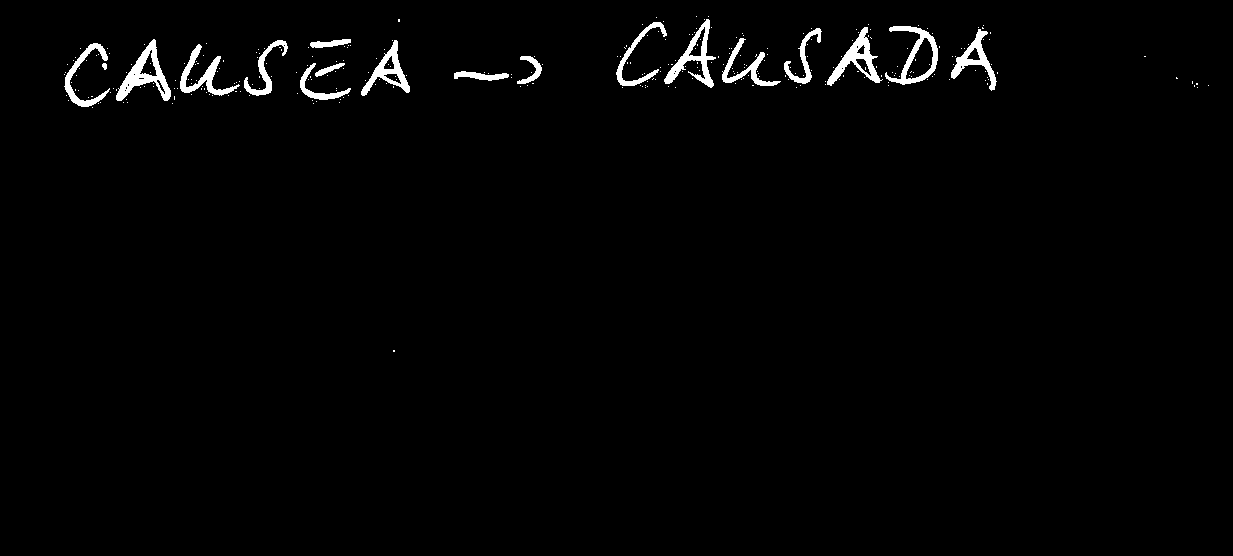 CAUSEA → CAUSADA